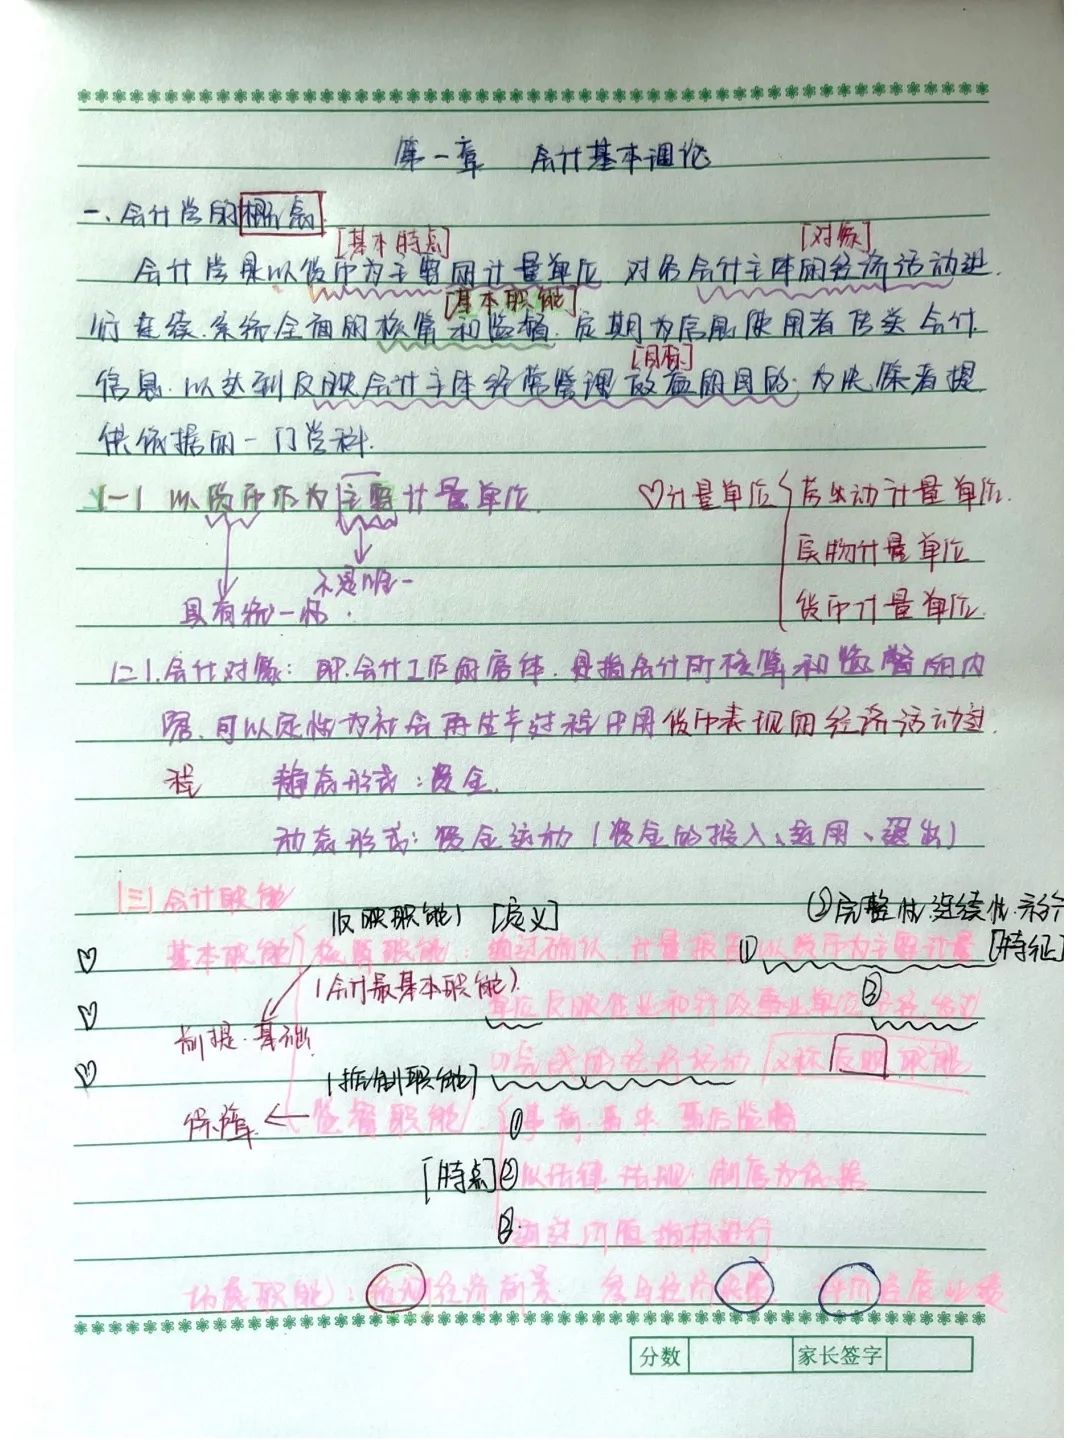 第一章 会计基本理论
一、会计学的概念
[基本特点] [对象]
会计学是以货币为主要的计量单位,对各会计主体的经济活动进
[基本职能]
行连续.系统全面的核算和监督.定期为信息使用者传类会计
[目标]
信息.以达到反映会计主体经营管理效益的目的.为决策者提
供依据的一门学科.
(一)以货币作为主要计量单位. ♡计量单位{劳动计量单位.
不是唯一 实物计量单位
具有统一性. 货币计量单位.
(二).会计对象:即.会计工作的客体.是指会计所核算和监督的内
容、可以定性为社会再生产过程中用货币表现的经济活动过
程 静态形式:资金.
动态形式:资金运动(资金的投入、运用、退出)
(三)会计职能
(反映职能) [定义] ②完整性.连续性.系统
♡ 基本职能{核算职能:通过确认、计量报告①以货币为主要计量 [特征]
(会计最基本职能). ③
♡ 单位反映企业和行政事业单位
前提.基础.
♡ 完成的经济活动 又称反映职能
(控制职能)
保障.← 监督职能.{①事前.事中.事后监督.
[特点]②以法律法规.制度为依据
③通过价值指标进行
拓展职能):预测经济前景 参与经济决策 评价经营业绩
分数 家长签字